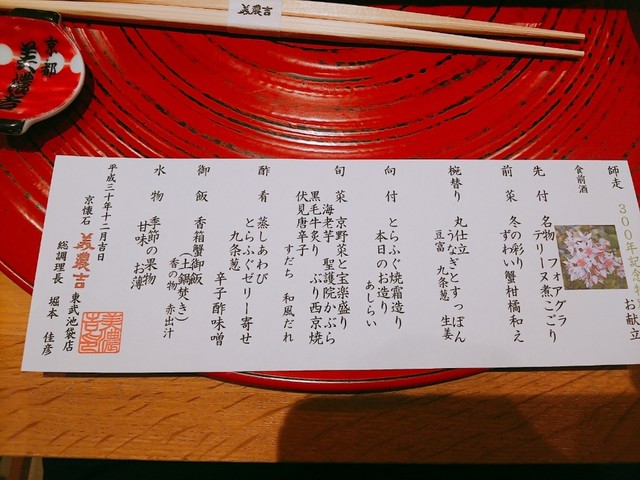 美濃吉
京都
美濃吉
師走
300年記
お献立
食前酒
先付 名物 フォアグラ
テリーヌ煮こごり
前菜 冬の彩り
ずわい蟹柑橘和え
椀替り 丸仕立
うなぎとすっぽん
豆富 九条葱 生姜
向付 とらふぐ焼霜造り
本日のお造り
あしらい
旬菜 京野菜と宝楽盛り
海老芋 聖護院かぶら
黒毛牛炙り ぶり西京焼
伏見唐辛子
すだち 和風だれ
酢肴 蒸しあわび
とらふぐゼリー寄せ
九条葱 辛子酢味噌
御飯 香箱蟹御飯
(土鍋焚き)
香の物 赤出汁
水物 季節の果物
甘味 お薄
平成三十年十二月吉日
京懐石 美濃吉 東武池袋店
総調理長 堀本 佳彦